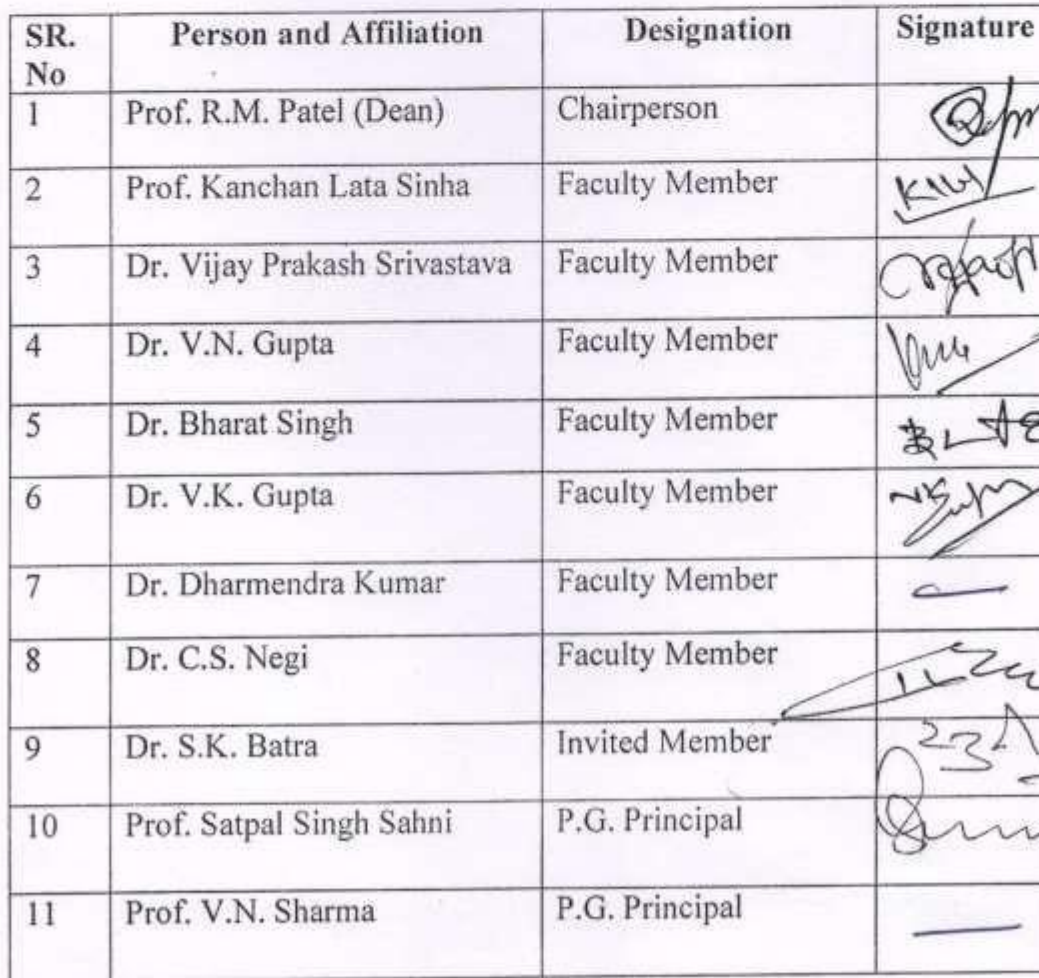 SR. No Person and Affiliation Designation Signature
1 Prof. R.M. Patel (Dean) Chairperson
2 Prof. Kanchan Lata Sinha Faculty Member
3 Dr. Vijay Prakash Srivastava Faculty Member
4 Dr. V.N. Gupta Faculty Member
5 Dr. Bharat Singh Faculty Member
6 Dr. V.K. Gupta Faculty Member
7 Dr. Dharmendra Kumar Faculty Member
8 Dr. C.S. Negi Faculty Member
9 Dr. S.K. Batra Invited Member
10 Prof. Satpal Singh Sahni P.G. Principal
11 Prof. V.N. Sharma P.G. Principal